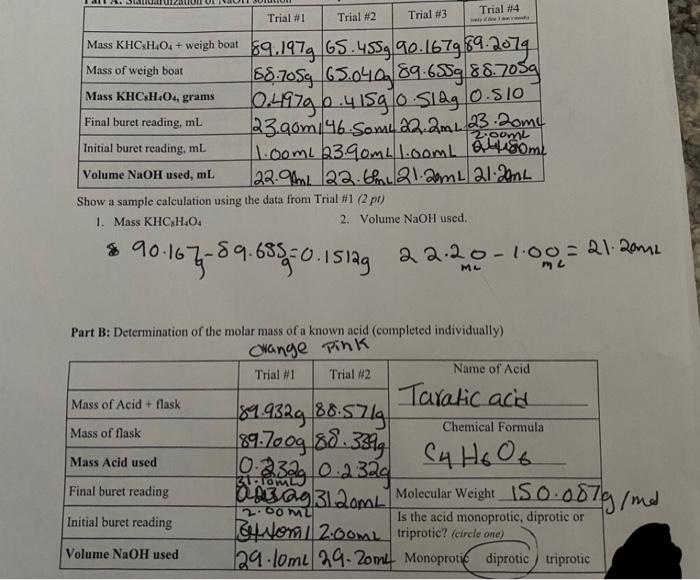 Part A: Standardization of NaOH solution
Trial #1 Trial #2 Trial #3 Trial #4
Mass KHC8H4O4 + weigh boat 89.197g 65.455g 90.167g 89.207g
Mass of weigh boat 88.705g 65.040g 89.655g 88.705g
Mass KHC8H4O4, grams 0.497g 0.415g 0.512g 0.510
Final buret reading, mL 23.90ml 46.50mL 22.2mL 23.20mL
Initial buret reading, mL 1.00mL 23.90mL 1.00mL 2.00mL
Volume NaOH used, mL 22.9mL 22.6mL 21.20mL 21.2mL
Show a sample calculation using the data from Trial #1 (2 pt)
1. Mass KHC8H4O4 2. Volume NaOH used.
90.167g - 89.655g = 0.1512g 22.20 mL - 1.00 mL = 21.20mL
Part B: Determination of the molar mass of a known acid (completed individually)
orange Pink
Trial #1 Trial #2 Name of Acid
Mass of Acid + flask 89.932g 88.571g Taratic acid
Mass of flask 89.700g 88.339g Chemical Formula
Mass Acid used 0.232g 0.232g C4H6O6
Final buret reading 31.10mL 31.20mL Molecular Weight 150.087g/mol
Initial buret reading 2.00mL 2.00mL Is the acid monoprotic, diprotic or triprotic? (circle one)
Volume NaOH used 29.10mL 29.20mL Monoprotic diprotic triprotic